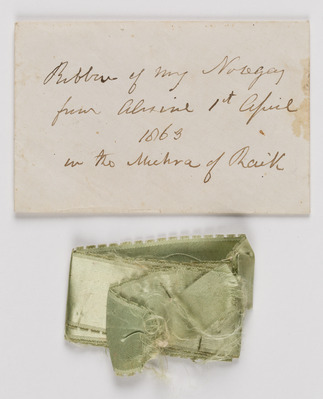 Ribbon of my Nosegay
from Alexine 1st April
1863
in the Mushra of Raik